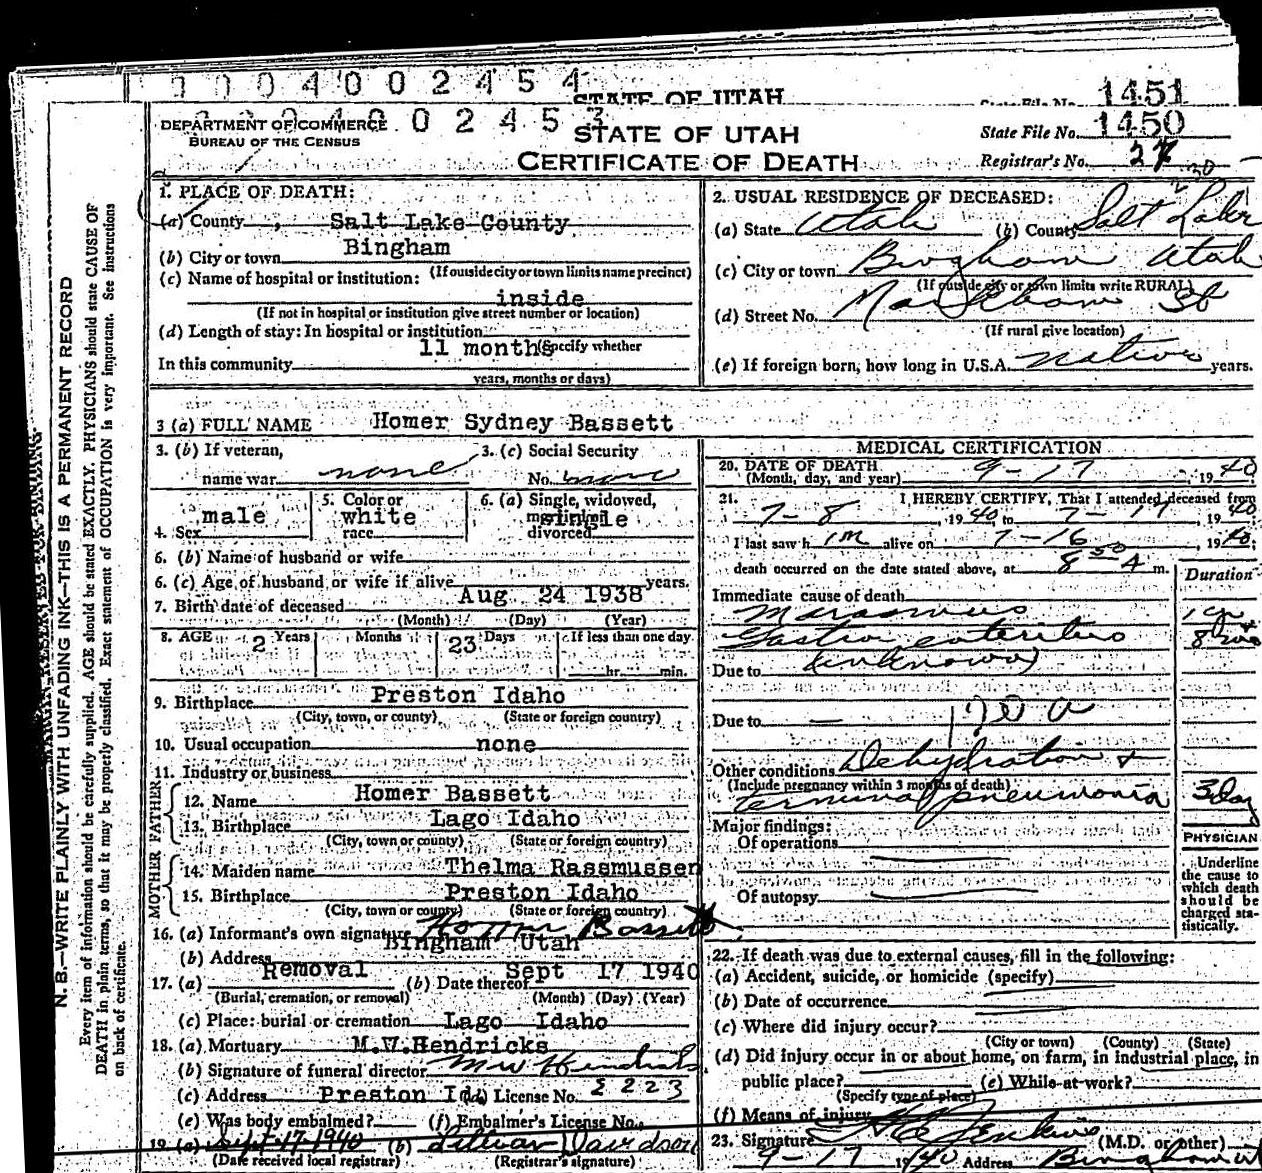 0004002454
STATE OF UTAH
State File No. 1451
0004002453
DEPARTMENT OF COMMERCE
BUREAU OF THE CENSUS
STATE OF UTAH
CERTIFICATE OF DEATH
State File No. 1450
Registrar's No. 27
N. B.—WRITE PLAINLY WITH UNFADING INK—THIS IS A PERMANENT RECORD
Every item of information should be carefully supplied. AGE should be stated EXACTLY. PHYSICIANS should state CAUSE OF
DEATH in plain terms, so that it may be properly classified. Exact statement of OCCUPATION is very important. See instructions
on back of certificate.
1. PLACE OF DEATH:
(a) County Salt Lake County
(b) City or town Bingham
(If outside city or town limits name precinct)
(c) Name of hospital or institution:
inside
(If not in hospital or institution give street number or location)
(d) Length of stay: In hospital or institution
(Specify whether
In this community 11 months
years, months or days)
2. USUAL RESIDENCE OF DECEASED:
(a) State Utah (b) County Salt Lake
(c) City or town Bingham Utah
(If outside city or town limits write RURAL)
(d) Street No. Markham St
(If rural give location)
(e) If foreign born, how long in U.S.A. native years.
3 (a) FULL NAME Homer Sydney Bassett
3. (b) If veteran,
name war none
3. (c) Social Security
No. none
4. Sex male
5. Color or
race white
6. (a) Single, widowed,
married,
divorced single
6. (b) Name of husband or wife
6. (c) Age of husband or wife if alive years.
7. Birth date of deceased Aug 24 1938
(Month) (Day) (Year)
8. AGE 2 Years Months 23 Days If less than one day
hr. min.
9. Birthplace Preston Idaho
(City, town, or county) (State or foreign country)
10. Usual occupation none
11. Industry or business
FATHER
12. Name Homer Bassett
13. Birthplace Lago Idaho
(City, town or county) (State or foreign country)
MOTHER
14. Maiden name Thelma Rassmussen
15. Birthplace Preston Idaho
(City, town or county) (State or foreign country)
16. (a) Informant's own signature Homer Bassett
(b) Address Bingham Utah
17. (a) Removal (b) Date thereof Sept 17 1940
(Burial, cremation, or removal) (Month) (Day) (Year)
(c) Place: burial or cremation Lago Idaho
18. (a) Mortuary M.W.Hendricks
(b) Signature of funeral director M W Hendricks
(c) Address Preston Id (d) License No. 223
(e) Was body embalmed? (f) Embalmer's License No.
19. (a) Sept 17 1940 (b) Lillian Davidson
(Date received local registrar) (Registrar's signature)
MEDICAL CERTIFICATION
20. DATE OF DEATH 9-17, 1940
(Month, day, and year)
21. I HEREBY CERTIFY, That I attended deceased from
7-8, 1940 to 7-17, 1940
I last saw him alive on 7-16, 1940;
death occurred on the date stated above, at 8 50 A m.
Duration
Immediate cause of death
Marasmus 1 yr
Gastro enteritis 8 mos
Due to (unknown)
Due to —
Other conditions Dehydration +
(Include pregnancy within 3 months of death)
terminal pneumonia 3 Day
Major findings:
Of operations
Of autopsy
PHYSICIAN
Underline
the cause to
which death
should be
charged sta-
tistically.
22. If death was due to external causes, fill in the following:
(a) Accident, suicide, or homicide (specify)
(b) Date of occurrence
(c) Where did injury occur?
(City or town) (County) (State)
(d) Did injury occur in or about home, on farm, in industrial place, in
public place? (e) While at work?
(Specify type of place)
(f) Means of injury
23. Signature Jenkins (M.D. or other)
9-17 1940 Address Bingham Ut